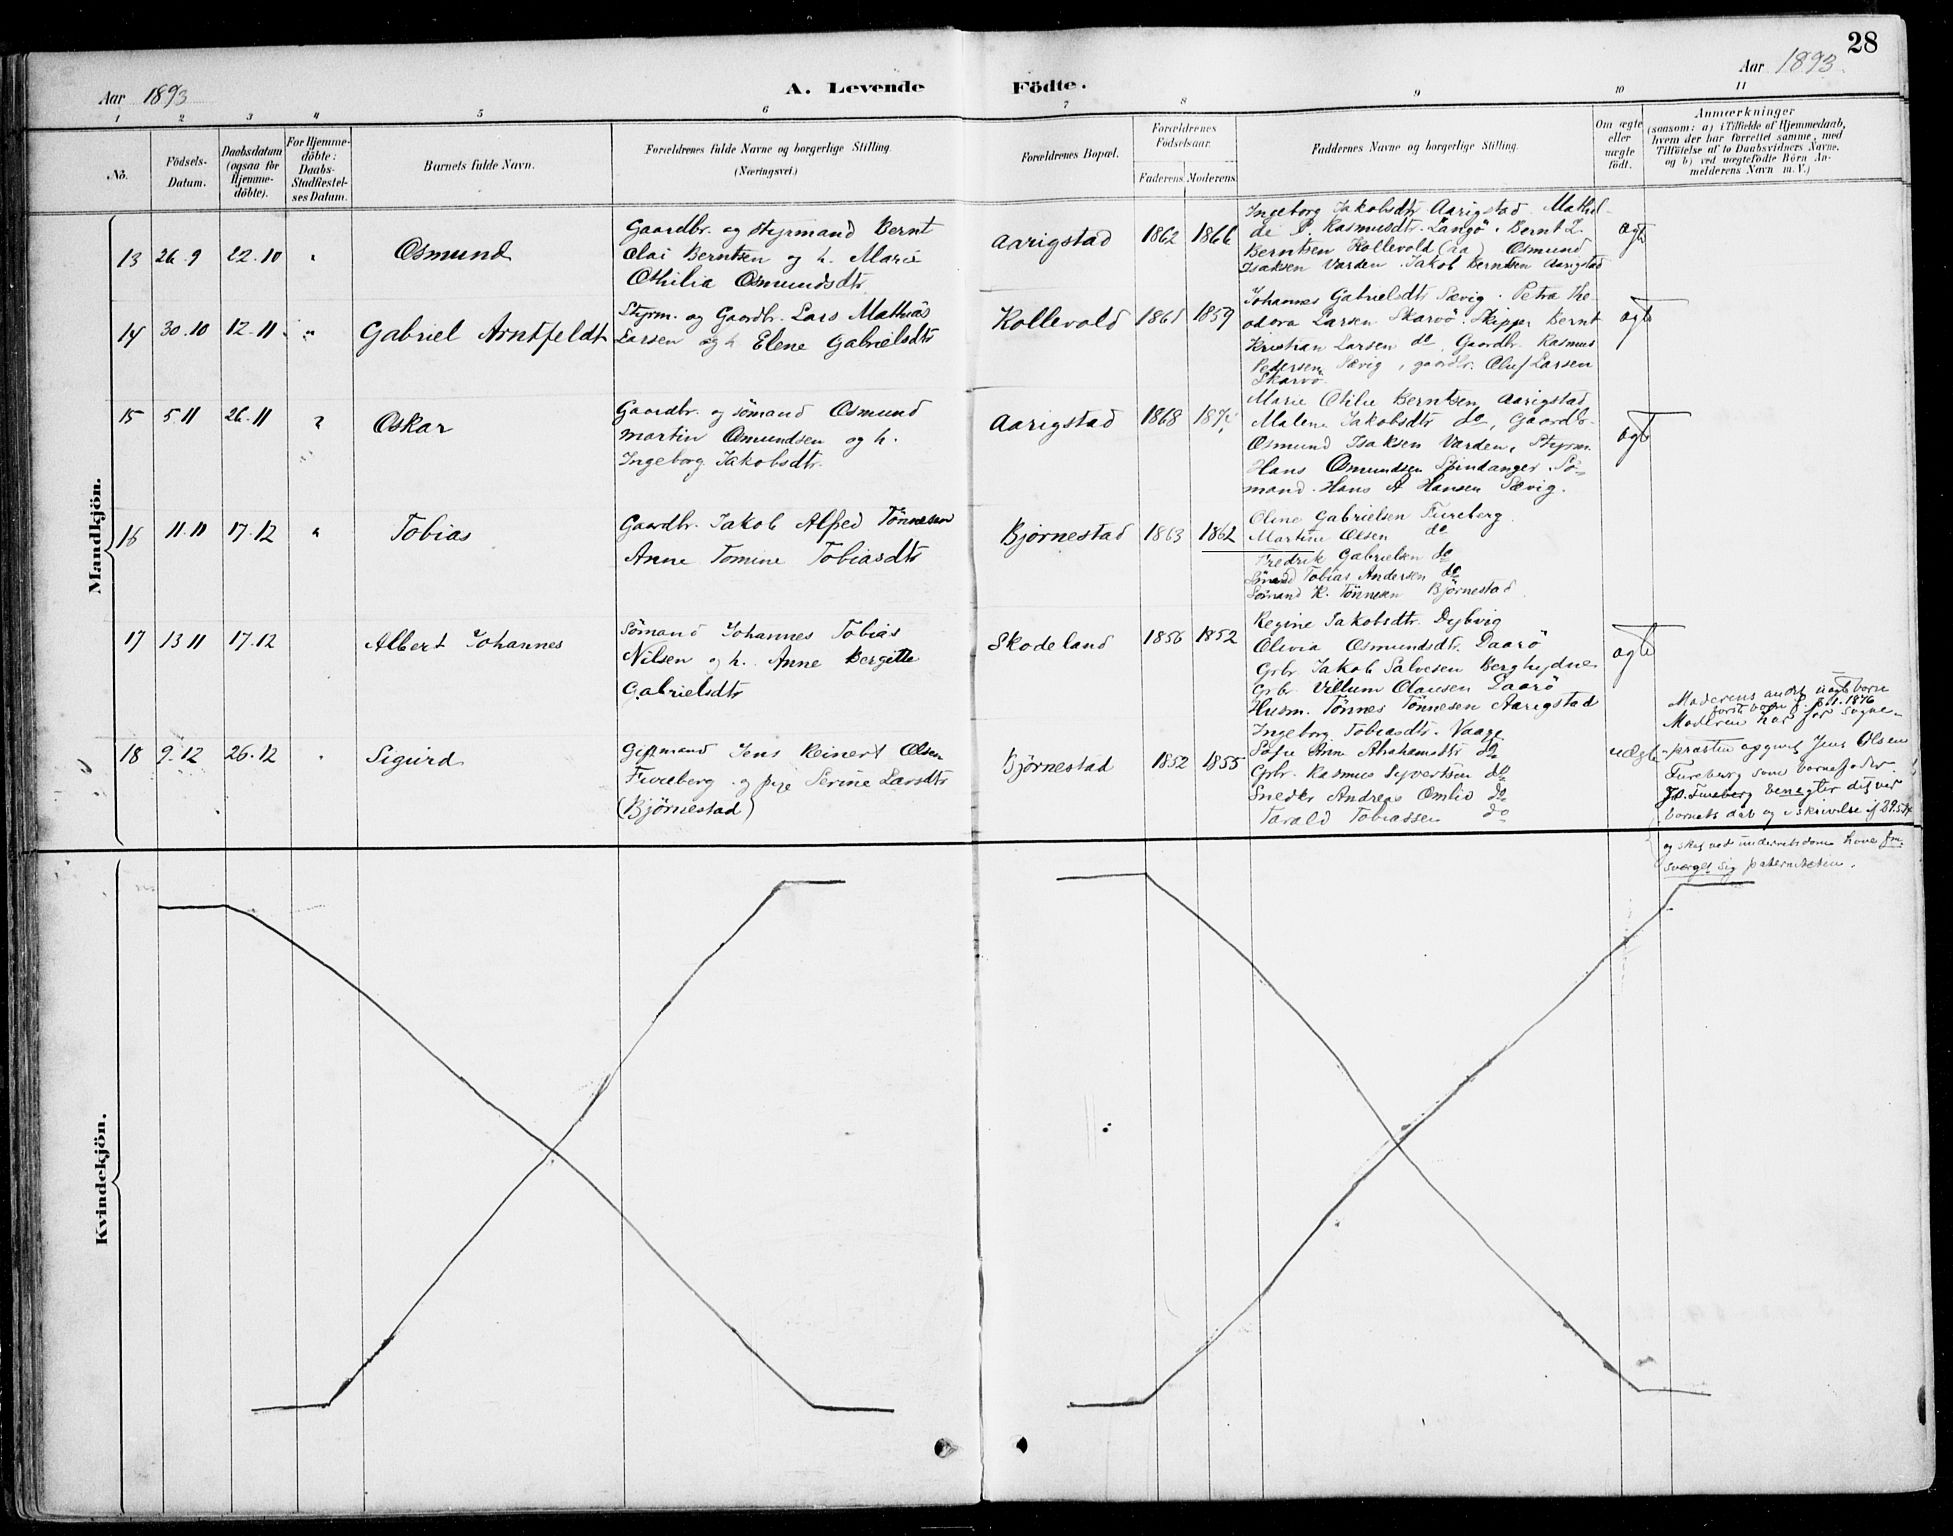 28
Aar 1893
A. Levende Födte.
Aar 1893.
1 2 3 4 5 6 7 8 9 10 11
No.
Födsels-Datum.
Daabsdatum (ogsaa for Hjemme-döbte).
For Hjemme-döbte: Daabs-Stadfæstel-ses Datum.
Barnets fulde Navn.
Forældrenes fulde Navne og borgerlige Stilling. (Næringsvei.)
Forældrenes Bopæl.
Forældrenes Födselsaar.
Faderens. Moderens.
Faddernes Navne og borgerlige Stilling.
Om ægte eller uægte födt.
Anmærkninger
(saasom: a) i Tilfælde af Hjemmedaab,
hvem der har forrettet samme, med
Tilföielse af to Daabsvidners Navne,
og b) ved uægtefödte Börn An-
melderens Navn m. V.)
Mandkjön.
13 26.9 22.10 " Osmund
Gaardbr. og styrmand Bernt
Olai Berntsen og h. Marie
Othilia Osmundsdtr
Aarigstad 1862 1866
Ingeborg Jakobsdtr Aarigstad. Mathil-
de P. Rasmusdtr. Langö. Bernt L.
Berntsen Kollevold Osmund
Isaksen Varden. Jakob Berntsen Aarigstad
ægte
14 30.10 12.11 " Gabriel Arntfeldt
Styrm. og Gaardbr. Lars Mathias
Larsen og h Elene Gabrielsdtr
Kollevold 1861 1859
Johannes Gabrielsdtr Sævig. Petra The-
odora Larsen Skarvö. Skipper Bernt
Kristian Larsen do, Gaardbr. Rasmus
Pedersen Sævig, gaardbr. Oluf Larsen
Skarvö.
ægte
15 5.11 26.11 " Oskar
Gaardbr. og sömand Osmund
Martin Osmundsen og h.
Ingeborg Jakobsdtr.
Aarigstad 1868
Marie Otilie Berntsen Aarigstad
Malene Jakobsdtr do, Gaardb.
Osmund Isaksen Varden, Styrm.
Hans Osmundsen Spindanger Sö-
mand Hans A Hansen Sævig.
ægte
16 11.11 17.12 " Tobias
Gaardbr. Jakob Alfred Tönnesen
Anne Tomine Tobiasdtr
Bjørnestad 1863 1862
Oline Gabrielsen Fureberg
Martine Olsen do
Fredrik Gabrielsen do
Sömand Tobias Andersen do
Sömand K. Tönnesen Bjørnestad
17 13.11 17.12 Albert Johannes
Sömand Johannes Tobias
Nilsen og h. Anne Bergitte
Gabrielsdtr
Skodeland 1856 1852
Regine Jakobsdtr. Dybvig
Olivia Osmundsdtr. Daarö
Grbr. Jakob Salvesen Berghydne
Grbr. Villum Olausen Daarö
Husm. Tönnes Tönnesen Aarigstad
ægte
18 9.12 26.12 " Sigurd
Gift mand Jens Reinert Olsen
Fureberg og pige Serine Larsdtr
(Bjørnestad)
Bjørnestad 1852 1855
Ingeborg Tobiasdtr. Vaage
Sofie Ann Abrahamsdtr do
Grbr. Rasmus Syvertsen do
Snedkr Andreas Omlid do
Tarald Tobiassen do
uægte
Moderens andet uægte barn
förste barn f. 1876
Moderen har for sogne-
præsten opgivet Jens Olsen
Fureberg som barnefader.
J.O. Fureberg benegter det ved
barnets dåb og i skrivelse af 29.5.94
og skal ved underretsdom have fra-
sværget sig paterniteten.
Kvindekjön.